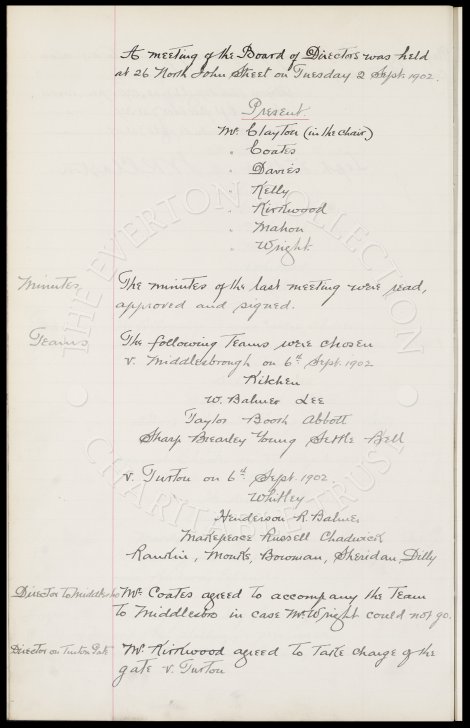 A meeting of the Board of Directors was held
at 26 North John Street on Tuesday 2 Sept. 1902.
Present.
Mr Clayton (in the chair)
" Coates
" Davies
" Kelly
" Kirkwood
" Mahon
" Wright.
Minutes
The minutes of the last meeting were read,
approved and signed.
Teams
The following Teams were chosen
v. Middlesbrough on 6th Sept. 1902
Kitchen
W. Balmer Lee
Taylor Booth Abbott
Sharp Brearley Young Settle Bell
v. Turton on 6th Sept. 1902.
Whitley
Henderson R. Balmer
Makepeace Russell Chadwick
Rankin, Monks, Bowman, Sheridan, Dilly
Director to Middlesbro
Mr. Coates agreed to accompany the Team
to Middlesbro in case Mr. Wright could not go.
Director on Turton Gate
Mr. Kirkwood agreed to take charge of the
gate v. Turton
THE EVERTON COLLECTION
CHARITABLE TRUST